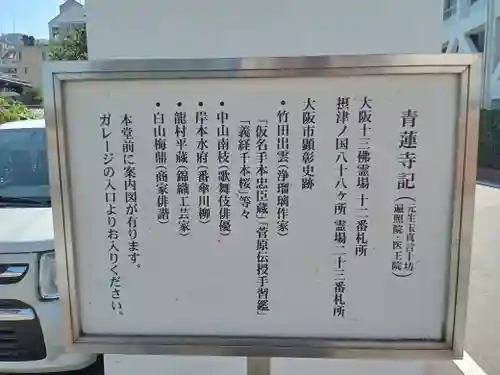 青蓮寺記（元生玉真言十坊 遍照院・医王院）
大阪十三佛霊場 十二番札所
摂津ノ国八十八ヶ所 霊場二十三番札所
大阪市顕彰史跡
●竹田出雲（浄瑠璃作家）
『仮名手本忠臣蔵』『菅原伝授手習鑑』
『義経千本桜』等々
●中山南枝（歌舞伎俳優）
●岸本水府（番傘川柳）
●龍村平蔵（錦織工芸家）
●白山梅鼎（商家俳諧）
本堂前に案内図が有ります。
ガレージの入口よりお入りください。